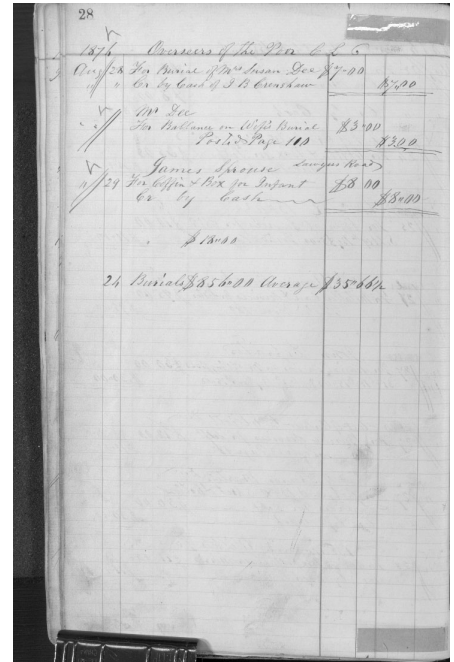 28
187 Overseers of the Poor
Aug 28 For Burial of Mrs Susan Dee $7.00
" " Cr by Cash of J B Crenshaw $7.00
Mr Dee
" " For Ballance on Wifes Burial $3.00
Post'd Page 110 $3.00
James Sprouse Road
" 29 For Coffin & Box for Infant $8.00
Cr by Cash $8.00
" $18.00
24 Burials $856.00 Average $35.66